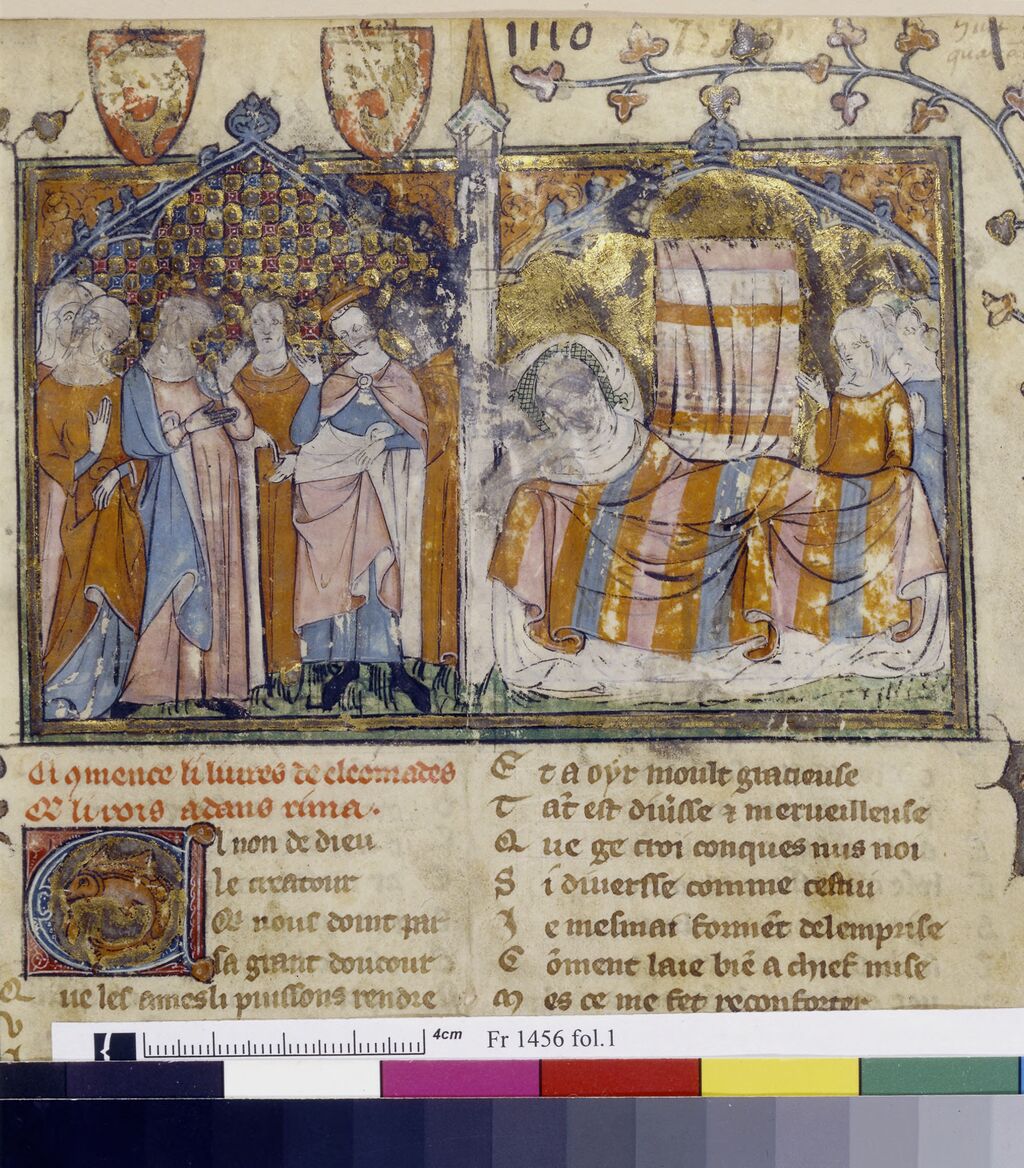 1110
Ci 9mence li livres de cleomades
Que li rois adans rima.
El non de dieu
le creatour
Qui nous doint par
sa grant doucour
Que les ames li puissons rendre
Et a oyr moult gracieuse
Tāt est divsse & merveilleuse
Que ge croi conques nus noi
Si diversse comme cestui
Je mesmai formēt delemprise
Cōment laie biē a chief mise
Mes ce me fet reconforter
4cm
Fr 1456 fol.1